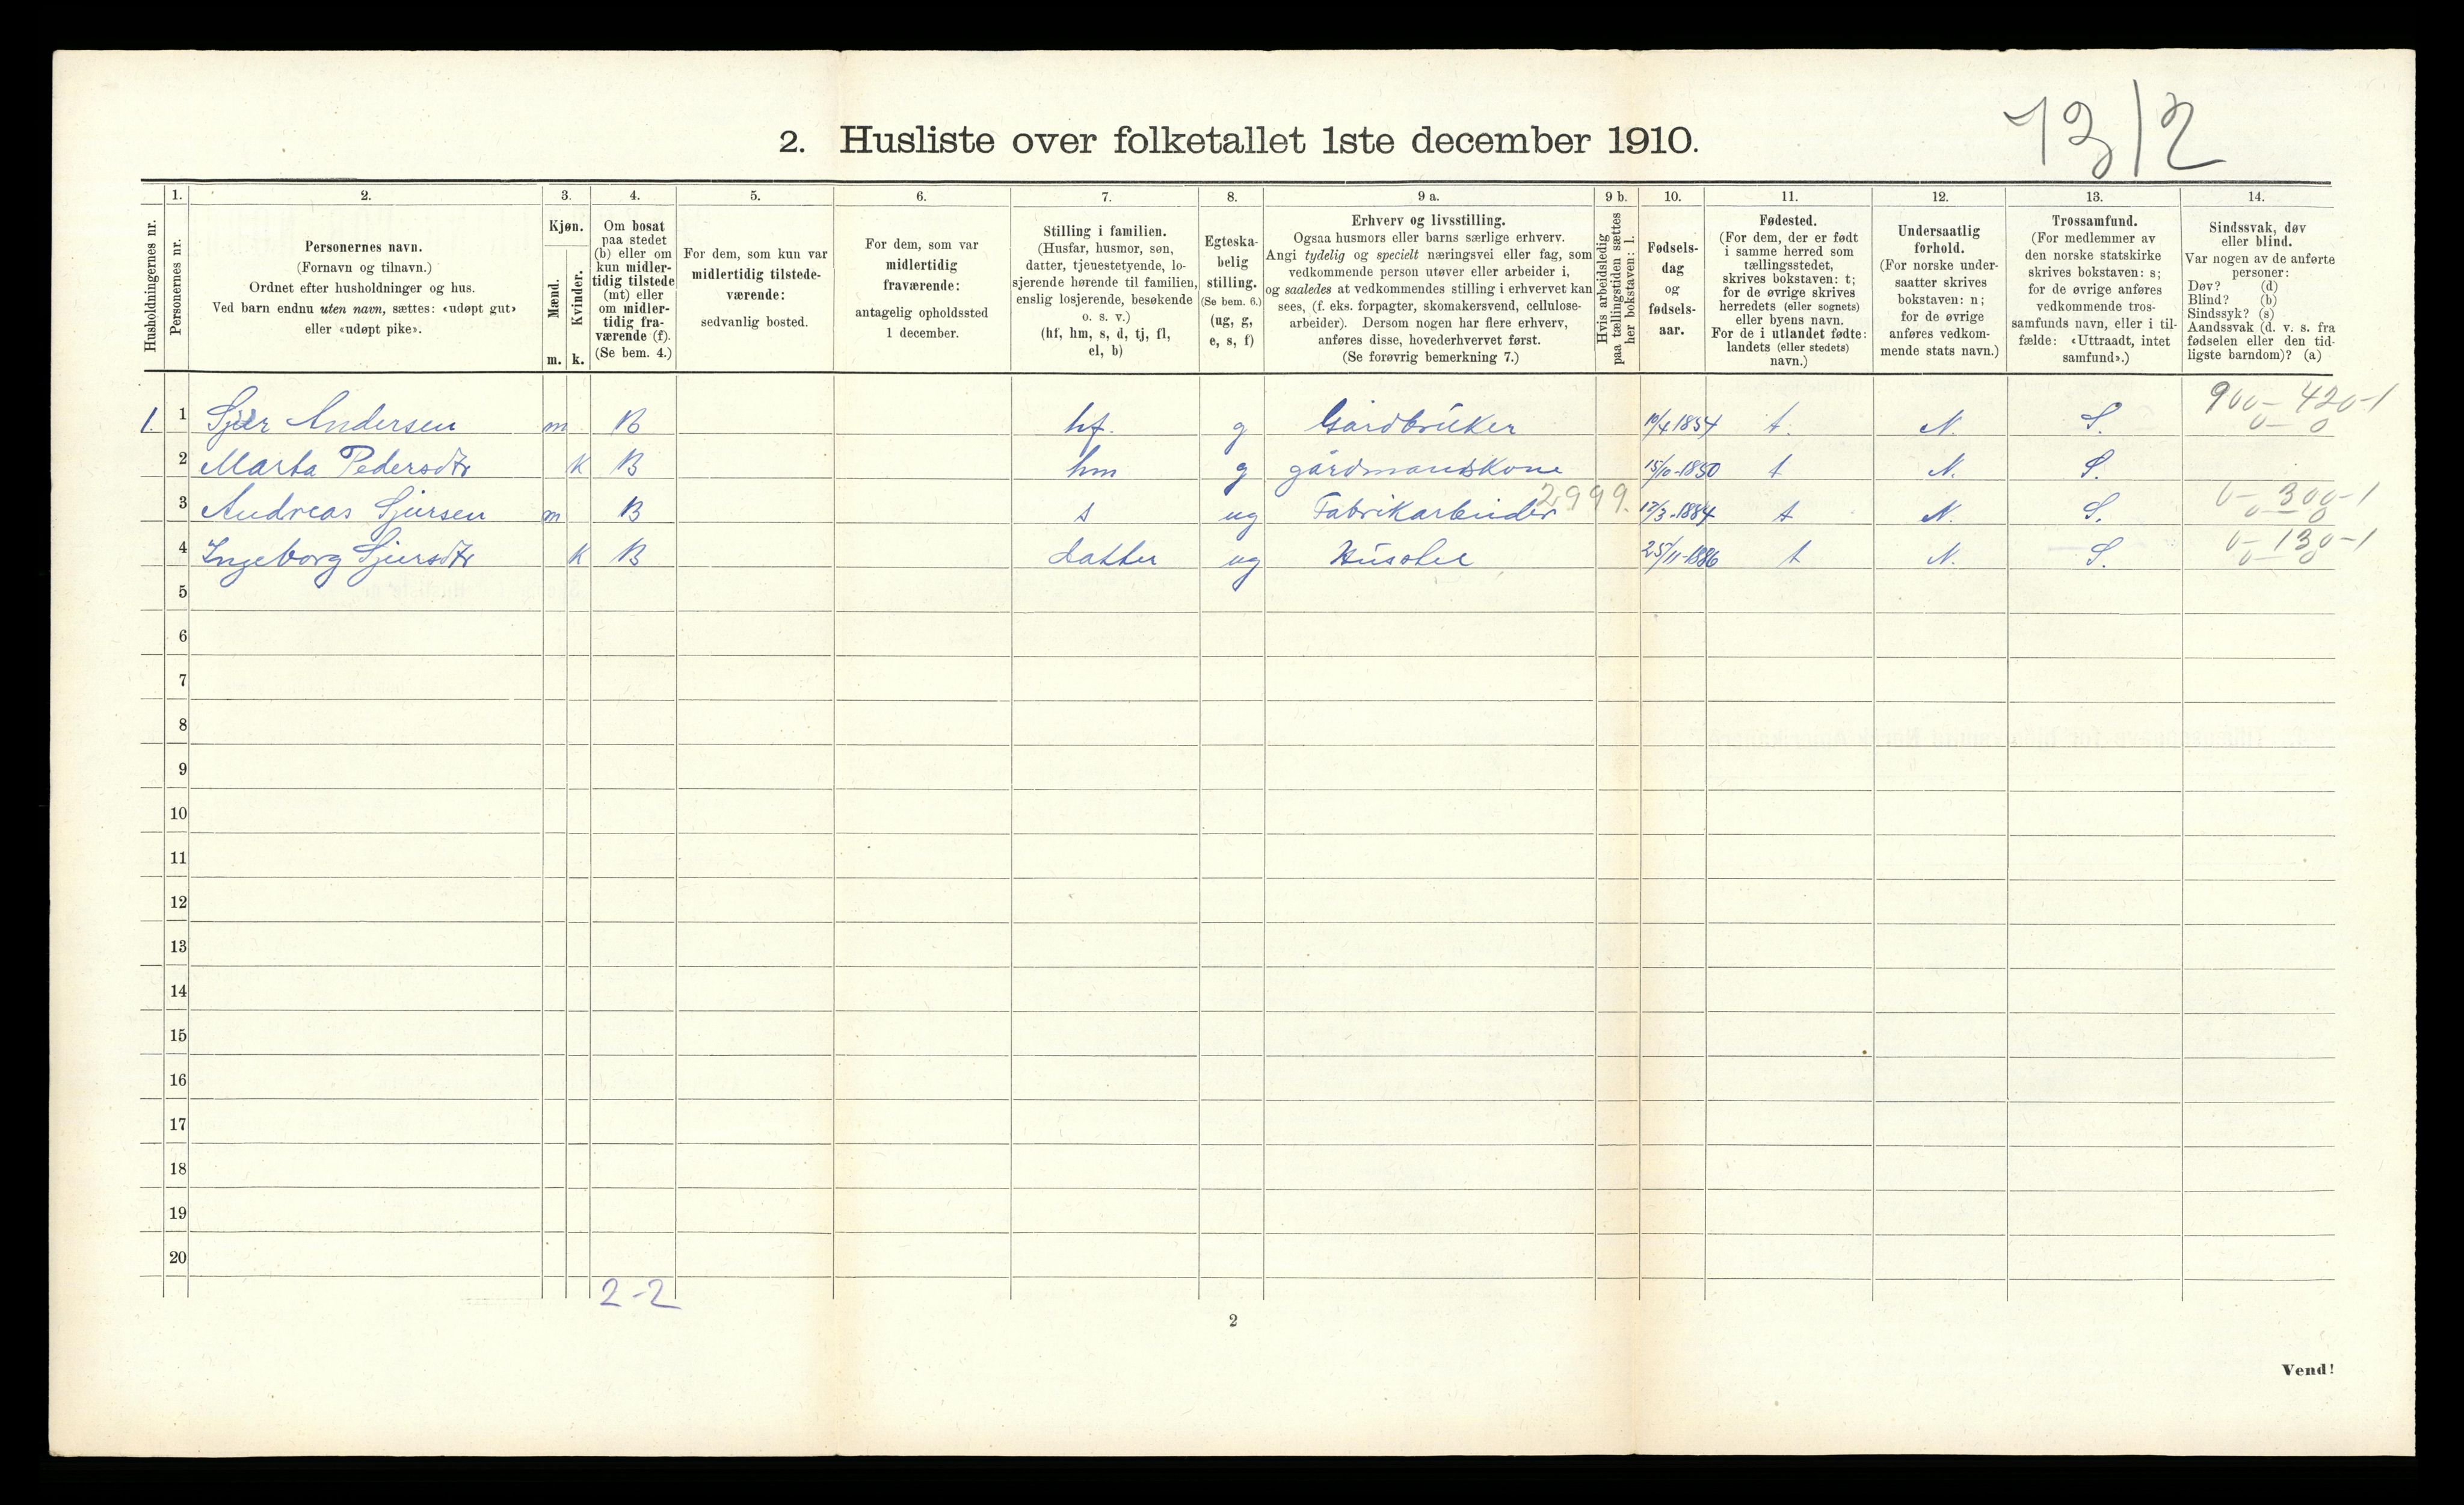 13/2
2. Husliste over folketallet 1ste december 1910.
Husholdningernes nr.
1. Personernes nr.
2. Personernes navn.
(Fornavn og tilnavn.)
Ordnet efter husholdninger og hus.
Ved barn endnu uten navn, sættes: «udøpt gut»
eller «udøpt pike».
3. Kjøn.
Mænd. m.
Kvinder. k.
4. Om bosat
paa stedet
(b) eller om
kun midler-
tidig tilstede
(mt) eller
om midler-
tidig fra-
værende (f).
(Se bem. 4.)
5. For dem, som kun var
midlertidig tilstede-
værende:
sedvanlig bosted.
6. For dem, som var
midlertidig
fraværende:
antagelig opholdssted
1 december.
7. Stilling i familien.
(Husfar, husmor, søn,
datter, tjenestetyende, lo-
sjerende hørende til familien,
enslig losjerende, besøkende
o. s. v.)
(hf, hm, s, d, tj, fl,
el, b)
8. Egteska-
belig
stilling.
(Se bem. 6.)
(ug, g,
e, s, f)
9 a. Erhverv og livsstilling.
Ogsaa husmors eller barns særlige erhverv.
Angi tydelig og specielt næringsvei eller fag, som
vedkommende person utøver eller arbeider i,
og saaledes at vedkommendes stilling i erhvervet kan
sees, (f. eks. forpagter, skomakersvend, cellulose-
arbeider). Dersom nogen har flere erhverv,
anføres disse, hovederhvervet først.
(Se forøvrig bemerkning 7.)
9 b. Hvis arbeidsledig
paa tællingstiden sættes
her bokstaven: l.
10. Fødsels-
dag
og
fødsels-
aar.
11. Fødested.
(For dem, der er født
i samme herred som
tællingsstedet,
skrives bokstaven: t;
for de øvrige skrives
herredets (eller sognets)
eller byens navn.
For de i utlandet fødte:
landets (eller stedets)
navn.)
12. Undersaatlig
forhold.
(For norske under-
saatter skrives
bokstaven: n;
for de øvrige
anføres vedkom-
mende stats navn.)
13. Trossamfund.
(For medlemmer av
den norske statskirke
skrives bokstaven: s;
for de øvrige anføres
vedkommende tros-
samfunds navn, eller i til-
fælde: «Uttraadt, intet
samfund».)
14. Sindssvak, døv
eller blind.
Var nogen av de anførte
personer:
Døv? (d)
Blind? (b)
Sindssyk? (s)
Aandssvak (d. v. s. fra
fødselen eller den tid-
ligste barndom)? (a)
900-420-1
1. 1 Sjur Andersen m B hf. g Gårdbrúker 1854 t. N. S. 0-0
2 Marta Pedersdtr k B hm g gårdmandskone 15/10-1850 t N. S.
0-300-1
3 Andreas Sjursen m B s ug Fabrikarbeider 2999. 17/3-1884 t N. S. 0-0
0-130-1
4 Ingeborg Sjursdtr k B datter ug Hússtel 25/11-1886 t N. S. 0-0
5
6
7
8
9
10
11
12
13
14
15
16
17
18
19
20
2-2
2
Vend!